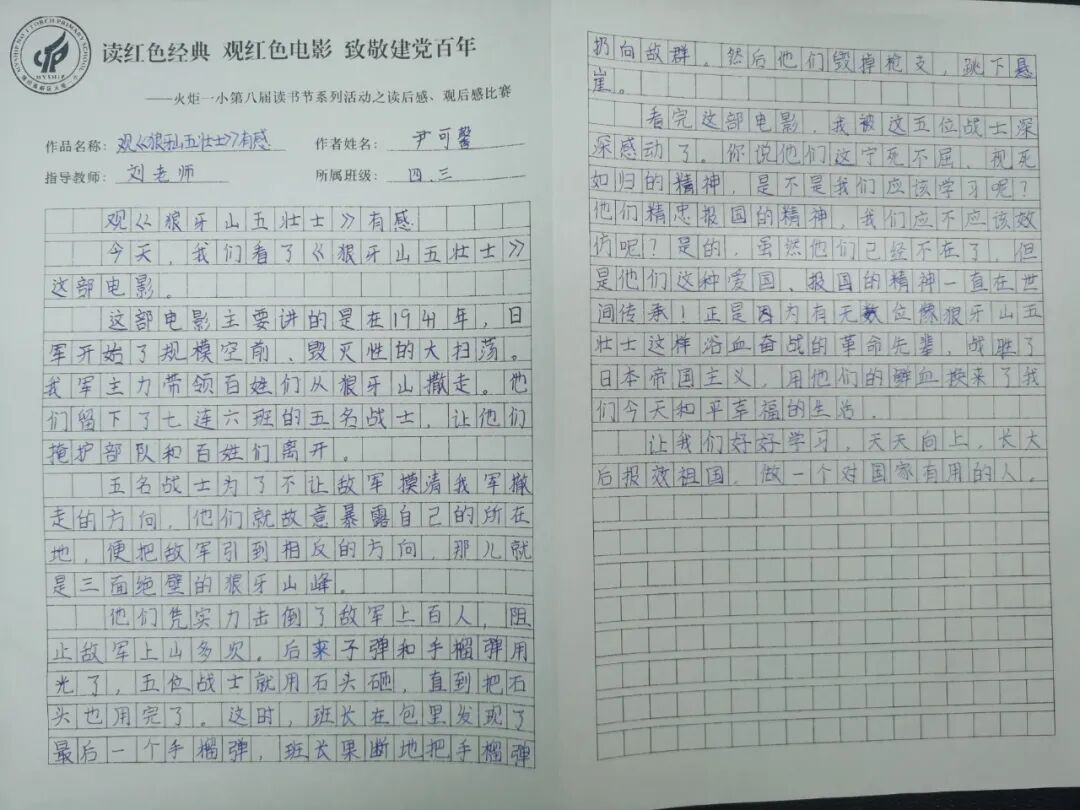 读红色经典 观红色电影 致敬建党百年
——火炬一小第八届读书节系列活动之读后感、观后感比赛
作品名称:观《狼牙山五壮士》有感 作者姓名:尹可馨
指导教师:刘老师 所属班级:四、三
观《狼牙山五壮士》有感
今天,我们看了《狼牙山五壮士》
这部电影。
这部电影主要讲的是在1941年,日
军开始了规模空前、毁灭性的大扫荡。
我军主力带领百姓们从狼牙山撤走。他
们留下了七连六班的五名战士,让他们
掩护部队和百姓们离开。
五名战士为了不让敌军摸清我军撤
走的方向,他们就故意暴露自己的所在
地,便把敌军引到相反的方向,那儿就
是三面绝壁的狼牙山峰。
他们凭实力击倒了敌军上百人,阻
止敌军上山多次。后来子弹和手榴弹用
光了,五位战士就用石头砸,直到把石
头也用完了。这时,班长在包里发现了
最后一个手榴弹,班长果断地把手榴弹
扔向敌群。然后他们毁掉枪支,跳下悬
崖。
看完这部电影,我被这五位战士深
深感动了。你说他们这宁死不屈、视死
如归的精神,是不是我们应该学习呢?
他们精忠报国的精神,我们应不应该效
仿呢?是的,虽然他们已经不在了,但
是他们这种爱国、报国的精神一直在世
间传承!正是因为有无数位像狼牙山五
壮士这样浴血奋战的革命先辈,战胜了
日本帝国主义,用他们的鲜血换来了我
们今天和平幸福的生活.
让我们好好学习,天天向上,长大
后报效祖国,做一个对国家有用的人。